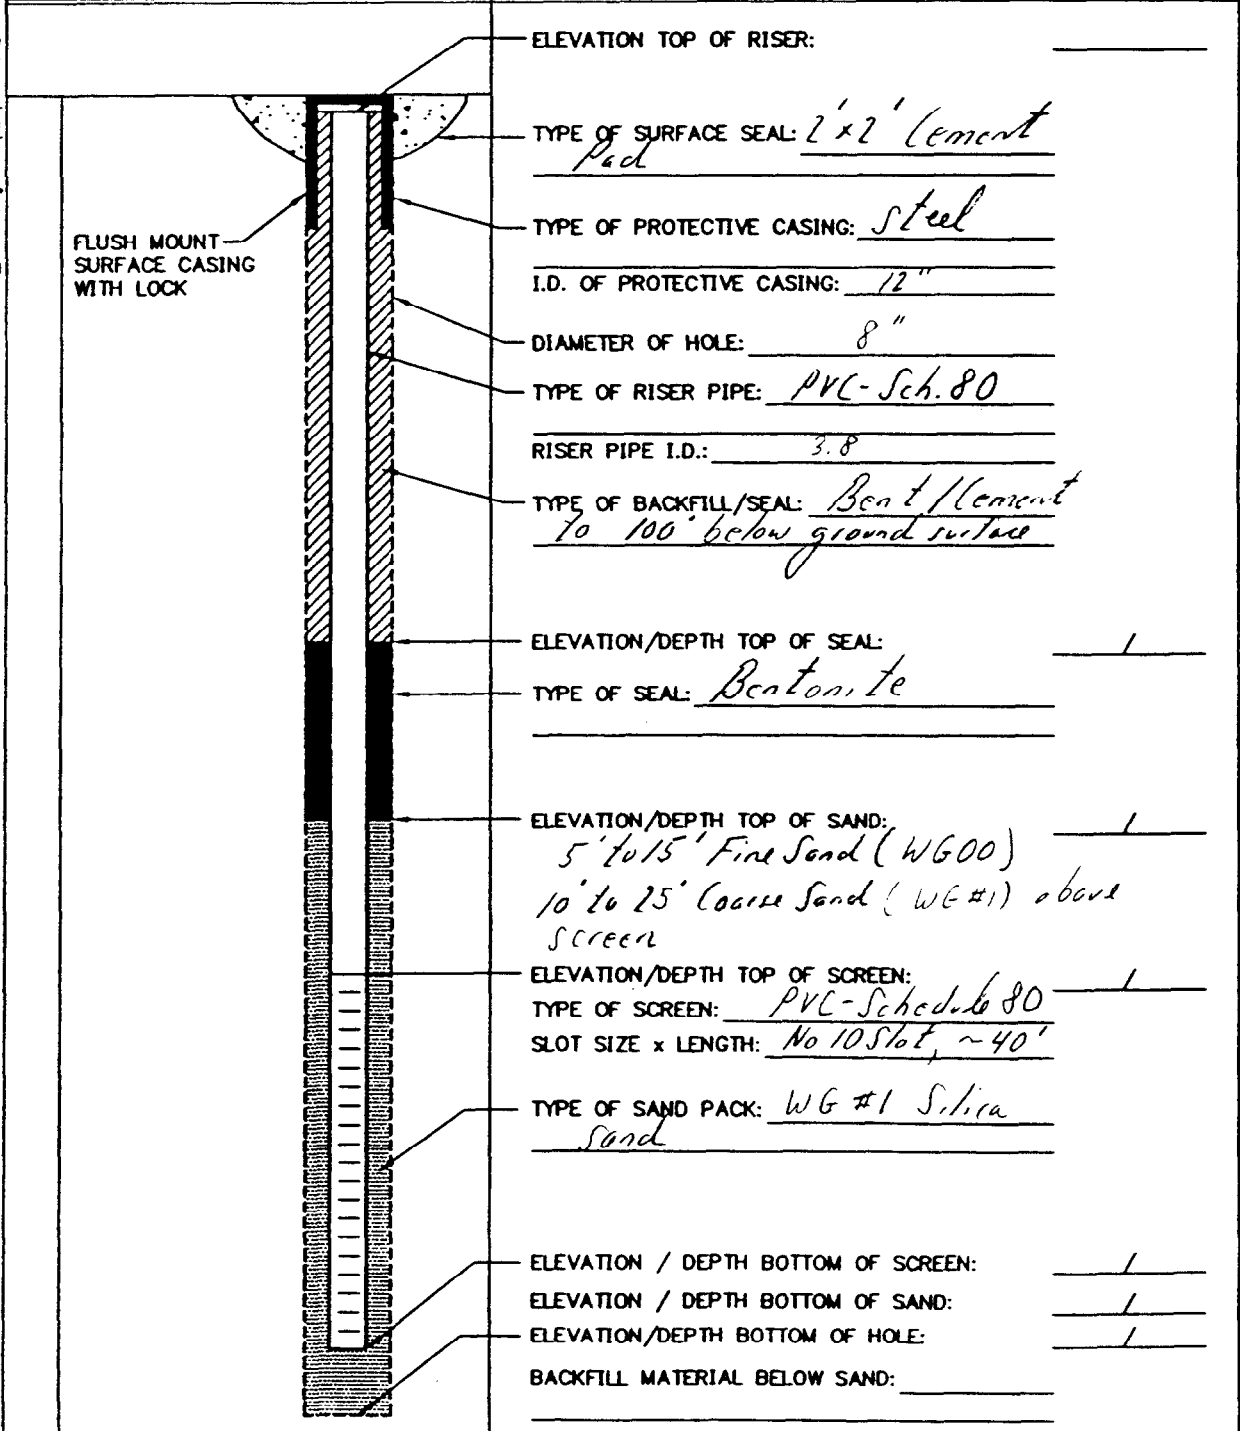 ELEVATION TOP OF RISER:
TYPE OF SURFACE SEAL: 2'x2' Cement
Pad
FLUSH MOUNT
SURFACE CASING
WITH LOCK
TYPE OF PROTECTIVE CASING: Steel
I.D. OF PROTECTIVE CASING: 12"
DIAMETER OF HOLE: 8"
TYPE OF RISER PIPE: PVC-Sch. 80
RISER PIPE I.D.: 3.8
TYPE OF BACKFILL/SEAL: Bent/Cement
to 100' below ground surface
ELEVATION/DEPTH TOP OF SEAL: /
TYPE OF SEAL: Bentonite
ELEVATION/DEPTH TOP OF SAND: /
5' to 15' Fine Sand (WG00)
10' to 25' Coarse Sand (WG #1) above
screen
ELEVATION/DEPTH TOP OF SCREEN: /
TYPE OF SCREEN: PVC-Schedule 80
SLOT SIZE x LENGTH: No 10 Slot, ~40'
TYPE OF SAND PACK: WG #1 Silica
Sand
ELEVATION / DEPTH BOTTOM OF SCREEN: /
ELEVATION / DEPTH BOTTOM OF SAND: /
ELEVATION/DEPTH BOTTOM OF HOLE: /
BACKFILL MATERIAL BELOW SAND: